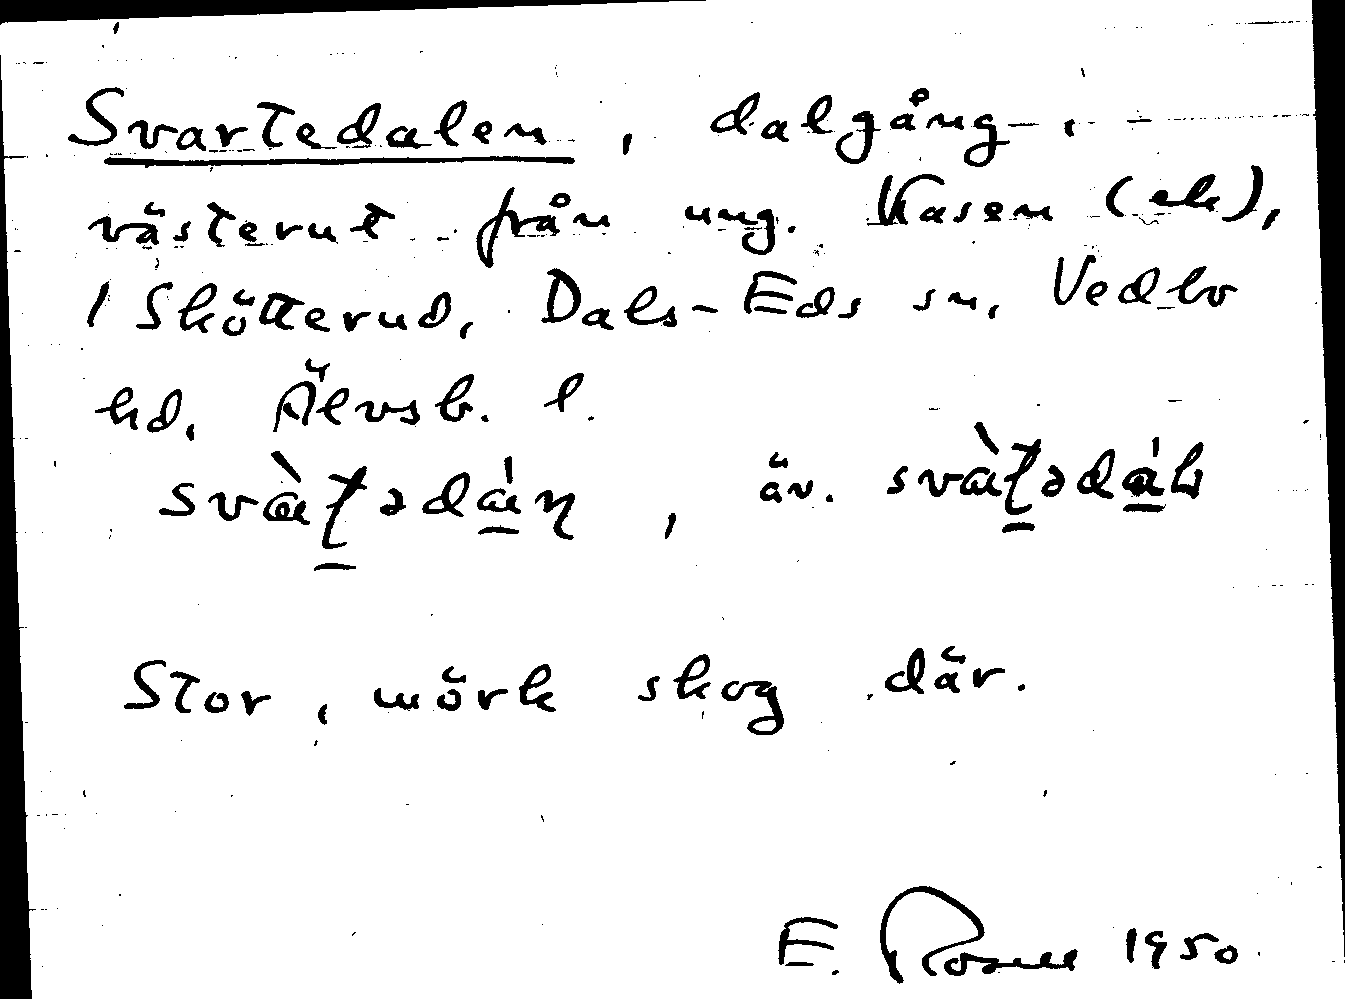 Svartedalen, dalgång,
västerut från ung. Kasen (ek),
1 Skötterud, Dals-Eds sn, Vedbo
hd, Älvsb. l.
svàt̠ədán, äv. svàt̠ədál
Stor, mörk skog där.
E. 1950